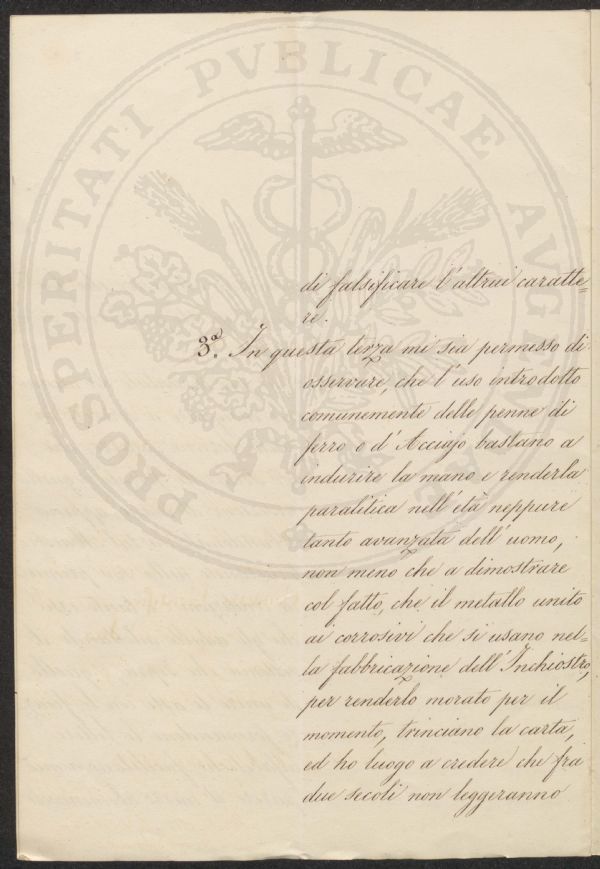 PROSPERITATI PVBLICAE AVGENDAE
di falsificare l'altrui caratte=
re.
3.ª In questa terza mi sia permesso di
osservare, che l'uso introdotto
comunemente delle penne di
ferro o d'Acciajo bastano a
indurire la mano e renderla
paralitica nell'età neppure
tanto avanzata dell'uomo,
non meno che a dimostrare
col fatto, che il metallo unito
ai corrosivi che si usano nel=
la fabbricazione dell'Inchiostro,
per renderlo morato per il
momento, trinciano la carta,
ed ho luogo a credere che fra
due secoli non leggeranno